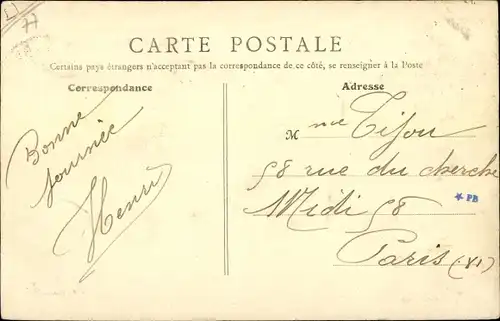 77
CARTE POSTALE
Certains pays étrangers n'acceptant pas la correspondance de ce côté, se renseigner à la Poste
Correspondance
Adresse
Bonne
journée
Henri
Mme Tijou
58 rue du cherche
Midi 58
Paris (VI)
* PB